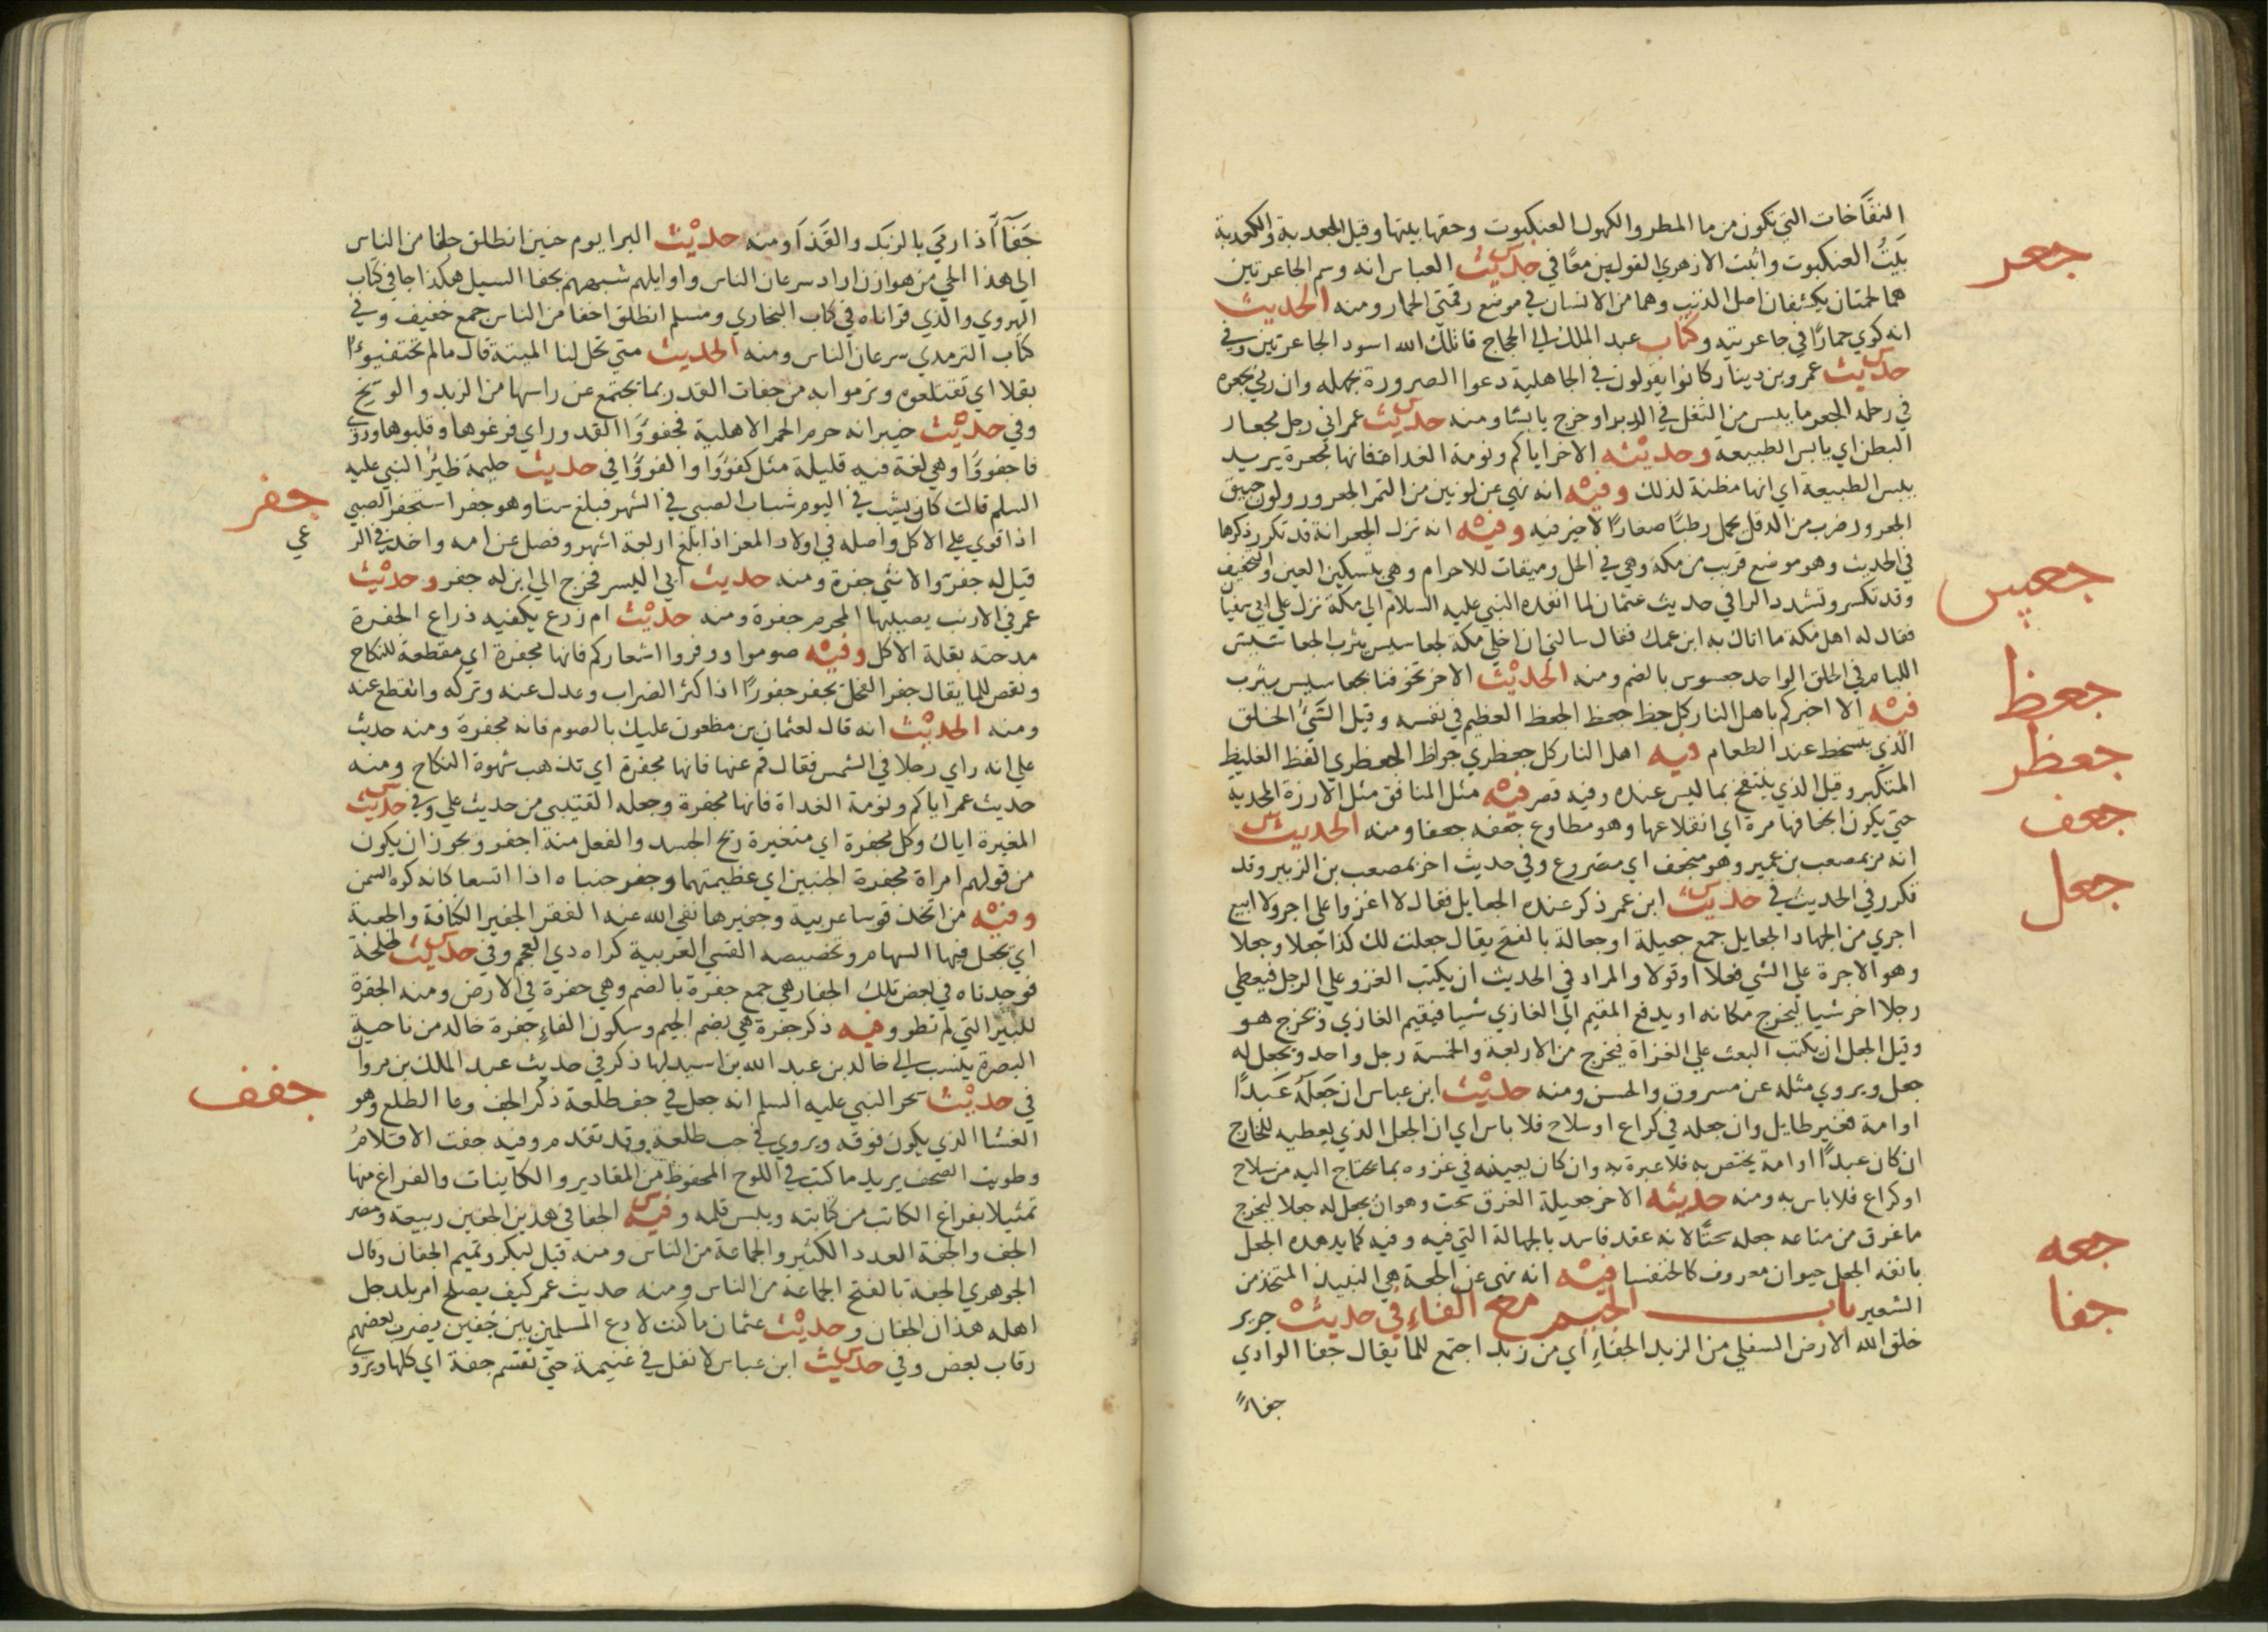 النفاخات التي تكون من ما المطر والكهول العنكبوت وحقها بيتها وقيل الجعدبة والكعدبة
بيت العنكبوت واثبت الازهري القولين معا في حديث العباس انه وسم الجاعرتين
جعر
هما لحمتان يكتنفان اصل الذنب وهما من الانسان في موضع رقمتي الحمار ومنه الحديث
انه كوي حمارا في جاعرتيه وكتاب عبد الملك الي الحجاج قاتلك الله اسود الجاعرتين وفي
حديث عمرو بن دينار كانوا يقولون في الجاهلية دعوا الصرورة بجهله وان رمي بجعره
في رحله الجعر ما يبس من الثفل في الدبر او خرج يابسا ومنه حديث عمر اني رجل مجعار
البطن اي يابس الطبيعة وحديثه الاخر اياكم ونومة الغداة فانها مجعرة يريد
يبس الطبيعة اي انها مظنة لذلك وفيه انه نهي عن لونين من التمر الجعرور ولون حبيق
الجعرور ضرب من الدقل يحمل رطبا صغارا لا خير فيه وفيه انه نزل الجعرانة قد تكرر ذكرها
في الحديث وهو موضع قريب من مكة وهي في الحل وميقات للاحرام وهي بتسكين العين والتخفيف
جعبس
وقد تكسر وتشدد الرا في حديث عثمان لما انفذه النبي عليه السلام الي مكة نزل علي ابي سفيا
فقال له اهل مكة ما اتاك به ابن عمك فقال سالني ان اخلي مكة لجعاسيس يثرب الجعاسيس
اللئام في الخلق الواحد جعسوس بالضم ومنه الحديث الاخر تخوفنا بجعاسيس يثرب
جعظ
فيه الا اخبركم باهل النار كل جظ جعظ الجعظ العظيم في نفسه وقيل السيئ الخلق
الذي يتسخط عند الطعام فيه اهل النار كل جعظري جواظ الجعظري الفظ الغليظ
جعظر
المتكبر وقيل الذي ينتفخ بما ليس عنده وفيه قصر فيه مثل المنافق مثل الارزة المجدية
جعف
حتي يكون انجعافها مرة اي انقلاعها وهو مطاوع جعفه جعفا ومنه الحديث
انه مر بمصعب بن عمير وهو منجعف اي مصروع وفي حديث اخر بمصعب بن الزبير وقد
جعل
تكرر في الحديث في حديث ابن عمر ذكر عنده الجعايل فقال لا اغزوا علي اجر ولا ابيع
اجري من الجهاد الجعايل جمع جعيلة او جعالة بالفتح يقال جعلت لك كذا جعلا وجعلا
وهو الاجرة علي الشي فعلا او قولا والمراد في الحديث ان يكتب الغزو علي الرجل فيعطي
رجلا اخر شيا ليخرج مكانه او يدفع المقيم الي الغازي شيا فيقيم الغازي ويخرج هو
وقيل الجعل ان يكتب البعث علي الغزاة فيخرج من الاربعة والخمسة رجل واحد ويجعل له
جعل ويروي مثله عن مسروق والحسن ومنه حديث ابن عباس ان جعله عبدا
او امة فغير طايل وان جعله في كراع او سلاح فلا باس اي ان الجعل الذي يعطيه للخارج
ان كان عبدا او امة يختص به فلا عبرة به وان كان يعينه في غزوه بما يحتاج اليه من سلاح
او كراع فلا باس به ومنه حديثه الاخر جعيلة الغرق سحت وهو ان يجعل له جعلا ليخرج
ما غرق من متاعه جعله سحتا لانه عقد فاسد بالجهالة التي فيه وفيه كما يدهده الجعل
جعه
بانفه الجعل حيوان معروف كالخنفسا فيه انه نهي عن الجعة هي النبيذ المتخذ من
الشعير باب الجيم مع الفاء في حديث جرير
جفا
خلق الله الارض السفلي من الزبد الجفاء اي من زبد اجتمع للما يقال جفا الوادي
جفاء
جفاءً اذا رمي بالزبد والقذا ومنه حديث البرا يوم حنين انطلق جفا من الناس
الي هذا الحي من هوازن اراد سرعان الناس واوايلهم شبههم بجفا السيل هكذا جا في كتاب
الهروي والذي قراناه في كتاب البخاري ومسلم انطلق اخفا من الناس جمع خفيف وفي
كتاب الترمذي سرعان الناس ومنه الحديث متي تحل لنا الميتة قال ما لم تجتفيوا
بقلا اي تقتلعوه وترموا به من جفات القدر بما يجتمع عن راسها من الزبد والوسخ
وفي حديث خيبر انه حرم الحمر الاهلية فجفووا القدور اي فرغوها وقلبوها وروي
فاجفووا وهي لغة فيه قليلة مثل كفووا والفووا في حديث حليمة ظئر النبي عليه
السلم قالت كان يشب في اليوم شباب الصبي في الشهر فبلغ ستا وهو جفر استجفر الصبي
جفر
اذا قوي علي الاكل واصله في اولاد المعز اذا بلغ اربعة اشهر وفصل عن امه واخذ في الر
عي
قيل له جفر والانثي جفرة ومنه حديث ابي اليسر فخرج الي ابن له جفر وحديث
عمر في الارنب يصيبها المحرم جفرة ومنه حديث ام زرع يكفيه ذراع الجفرة
مدحته بقلة الاكل وفيه صوموا ووفروا اشعاركم فانها مجفرة اي مقطعة للنكاح
ونقص للما يقال جفر الفحل يجفر جفورا اذا اكثر الضراب وعدل عنه وتركه وانقطع عنه
ومنه الحديث انه قال لعثمان بن مظعون عليك بالصوم فانه مجفرة ومنه حديث
علي انه راي رجلا في الشمس فقال قم عنها فانها مجفرة اي تذهب شهوة النكاح ومنه
حديث عمر اياكم ونومة الغداة فانها مجفرة وجعله القتيبي من حديث علي وفي حديث
المغيرة اياك وكل مجفرة اي متغيرة ريح الجسد والفعل منه اجفر ويجوز ان يكون
من قولهم امراة مجفرة الجنبين اي عظيمتهما وجفر جنباه اذا اتسعا كانه كره السمن
وفيه من اتخذ قوسا عربية وجفيرها نفي الله عنه الفقر الجفير الكنانة والجعبة
اي تجعل فيها السهام وتخصيصه القسي العربية كراه دي العجم وفي حديث طلحة
فوجدناه في بعض تلك الجفار هي جمع جفرة بالضم وهي حفرة في الارض ومنه الجفرة
للبير التي لم تطو وفيه ذكر جفرة هي بضم الجيم وسكون الفاء جفرة خالد من ناحية
البصرة ينسب الي خالد بن عبد الله بن اسيد لها ذكر في حديث عبد الملك بن مروان
في حديث سحر النبي عليه السلم انه جعل في جف طلعة ذكر الجف وعا الطلع وهو
جفف
الغشا الذي يكون فوقه ويروي في جب طلعة وقد تقدم وفيه جفت الاقلام
وطويت الصحف يريد ما كتب في اللوح المحفوظ من المقادير والكاينات والفراغ منها
تمثيلا بفراغ الكاتب من كتابته ويبس قلمه وفيه الجفا في هذين الجفين ربيعة ومضر
الجف والجفة العدد الكثير والجماعة من الناس ومنه قيل لبكر وتميم الجفان وقال
الجوهري الجفة بالفتح الجماعة من الناس ومنه حديث عمر كيف يصلح امر بلد جل
اهله هذان الجفان وحديث عثمان ما كنت لادع المسلمين بين جفين يضرب بعضهم
رقاب بعض وفي حديث ابن عباس لا نفل في غنيمة حتي تقسم جفة اي كلها ويروي